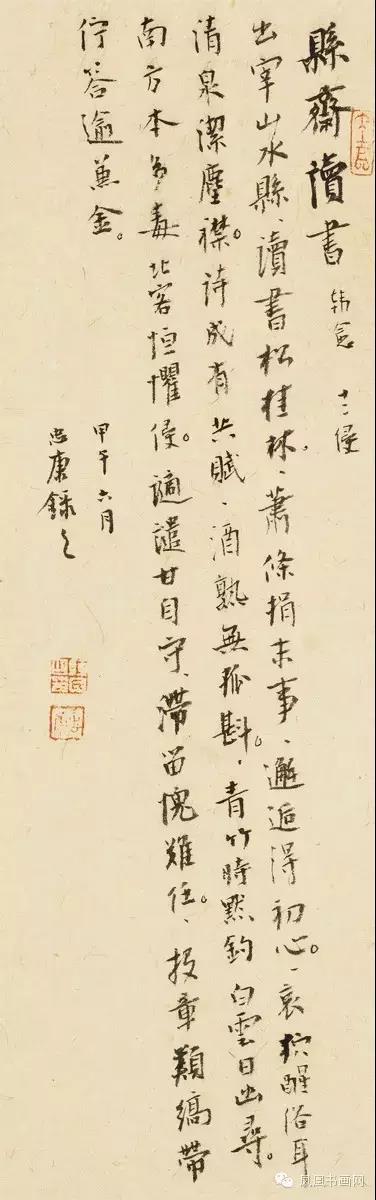 縣齋讀書 韩愈 十二侵
出宰山水縣、讀書松桂林、蕭條捐末事、邂逅得初心。哀狖醒俗耳
清泉潔塵襟。詩成有共賦、酒熟無孤斟。青竹時默釣 白雲日幽尋。
南方本多毒 北客恒懼侵。謫譴甘自守、滯留愧難任。投章類縞帶
佇答逾兼金。
甲午六月
忠康錄之
凤凰书画网